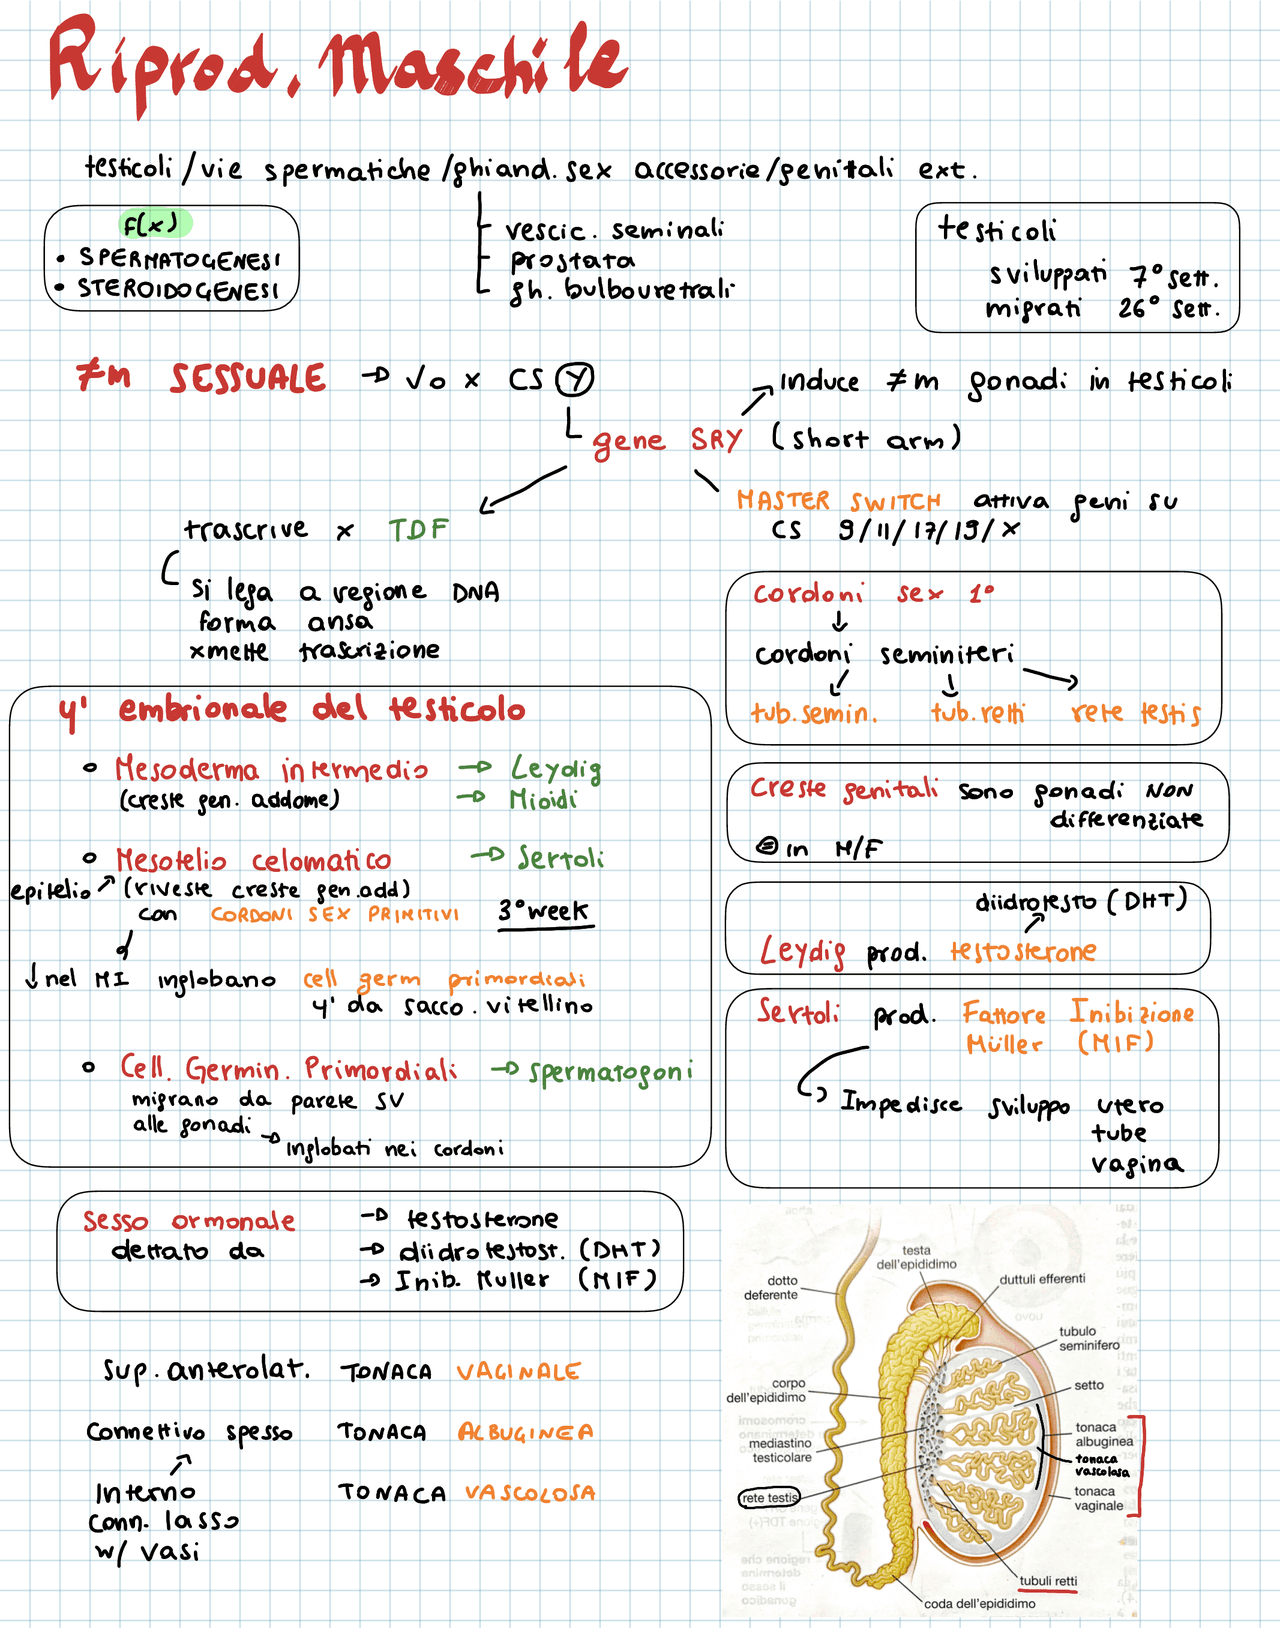 Riprod. Maschile
testicoli / vie spermatiche / ghiand. sex accessorie / genitali ext.
F(x)
• SPERMATOGENESI
• STEROIDOGENESI
vescic. seminali
prostata
gh. bulbouretrali
testicoli
sviluppati 7° sett.
migrati 26° sett.
≠m SESSUALE → √o x CS Y
gene SRY (short arm)
induce ≠m gonadi in testicoli
MASTER SWITCH attiva geni su
CS 9/11/17/19/X
trascrive x TDF
si lega a regione DNA
forma ansa
xmette trascrizione
cordoni sex 1°
↓
cordoni seminiferi
tub. semin. tub. retti rete testis
y' embrionale del testicolo
Mesoderma intermedio → Leydig
(creste gen. addome) → Mioidi
Mesotelio celomatico → Sertoli
epitelio ↗ (riveste creste gen. add)
con CORDONI SEX PRIMITIVI 3° week
↓ nel MI inglobano cell germ primordiali
y' da sacco. vitellino
Cell. Germin. Primordiali → spermatogoni
migrano da parete SV
alle gonadi → inglobati nei cordoni
Creste genitali sono gonadi NON
differenziate
⊜ in M/F
diidrotesto (DHT)
Leydig prod. testosterone
Sertoli prod. Fattore Inibizione
Müller (MIF)
Impedisce sviluppo utero
tube
vagina
sesso ormonale → testosterone
dettato da → diidrotestost. (DHT)
→ Inib. Muller (MIF)
sup. anterolat. TONACA VAGINALE
Connettivo spesso TONACA ALBUGINEA
Interno TONACA VASCOLOSA
conn. lasso
w/ vasi
testa
dell'epididimo
dotto
deferente
duttuli efferenti
tubulo
seminifero
setto
corpo
dell'epididimo
tonaca
albuginea
mediastino
testicolare
tonaca
vascolosa
rete testis
tonaca
vaginale
tubuli retti
coda dell'epididimo